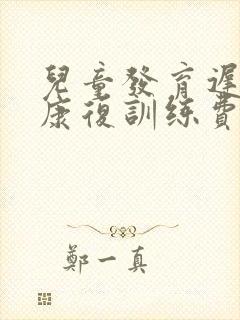 兒童發育遲
康復訓練費
鄭一真